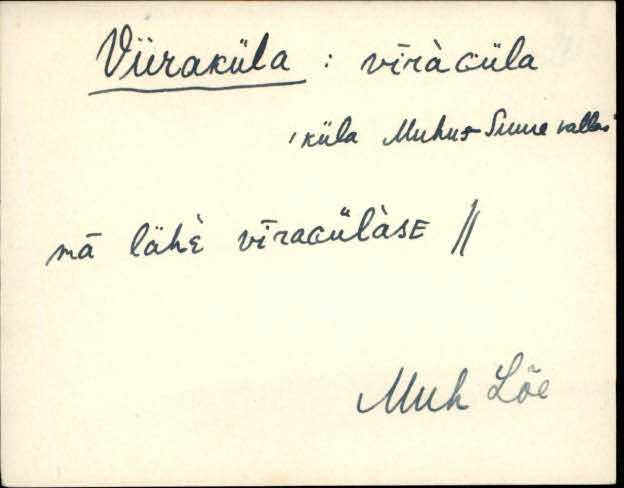 Viiraküla : vīràɢüla
'küla Muhus-Suure vallas'
mā lähè vīraɢülàsᴇ //
Muh Lõe